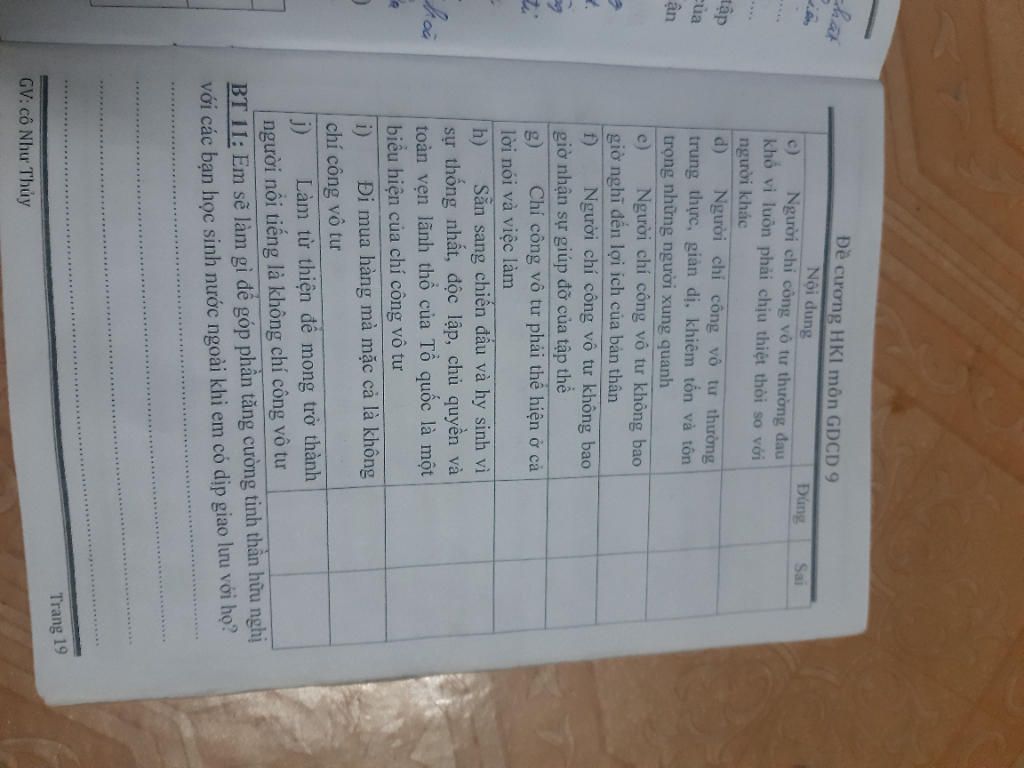 Đề cương HKI môn GDCD 9
Nội dung Đúng Sai
c) Người chí công vô tư thường đau
khổ vì luôn phải chịu thiệt thòi so với
người khác
d) Người chí công vô tư thường
trung thực, giản dị, khiêm tốn và tôn
trọng những người xung quanh
e) Người chí công vô tư không bao
giờ nghĩ đến lợi ích của bản thân
f) Người chí công vô tư không bao
giờ nhận sự giúp đỡ của tập thể
g) Chí công vô tư phải thể hiện ở cả
lời nói và việc làm
h) Sẵn sang chiến đấu và hy sinh vì
sự thống nhất, độc lập, chủ quyền và
toàn vẹn lãnh thổ của Tổ quốc là một
biểu hiện của chí công vô tư
i) Đi mua hàng mà mặc cả là không
chí công vô tư
j) Làm từ thiện để mong trở thành
người nổi tiếng là không chí công vô tư
BT 11: Em sẽ làm gì để góp phần tăng cường tinh thần hữu nghị
với các bạn học sinh nước ngoài khi em có dịp giao lưu với họ?
GV: cô Như Thủy Trang 19
tập
của